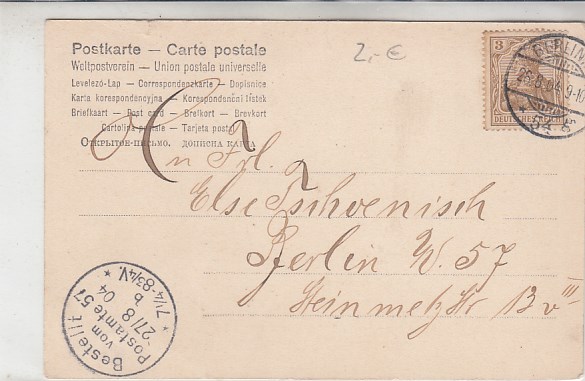 Postkarte — Carte postale
Weltpostverein — Union postale universelle
Levelező-Lap — Correspondenzkarte — Dopisnice
Karta korespondencyjna — Korespondenční lístek
Briefkaart — Post card — Brefkort — Brevkort
Cartolina postale — Tarjeta postal
Открытое письмо. дописна карта
2,- €
3
DEUTSCHES REICH
BERLIN
26.8.04. 9-10
54
An Frl.
Else Tschoenisch
Berlin W. 57
Steinmetzstr 13 v III
Bestellt
vom
Postamte 57
27/8 04
7 1/4-8 3/4 V.
b